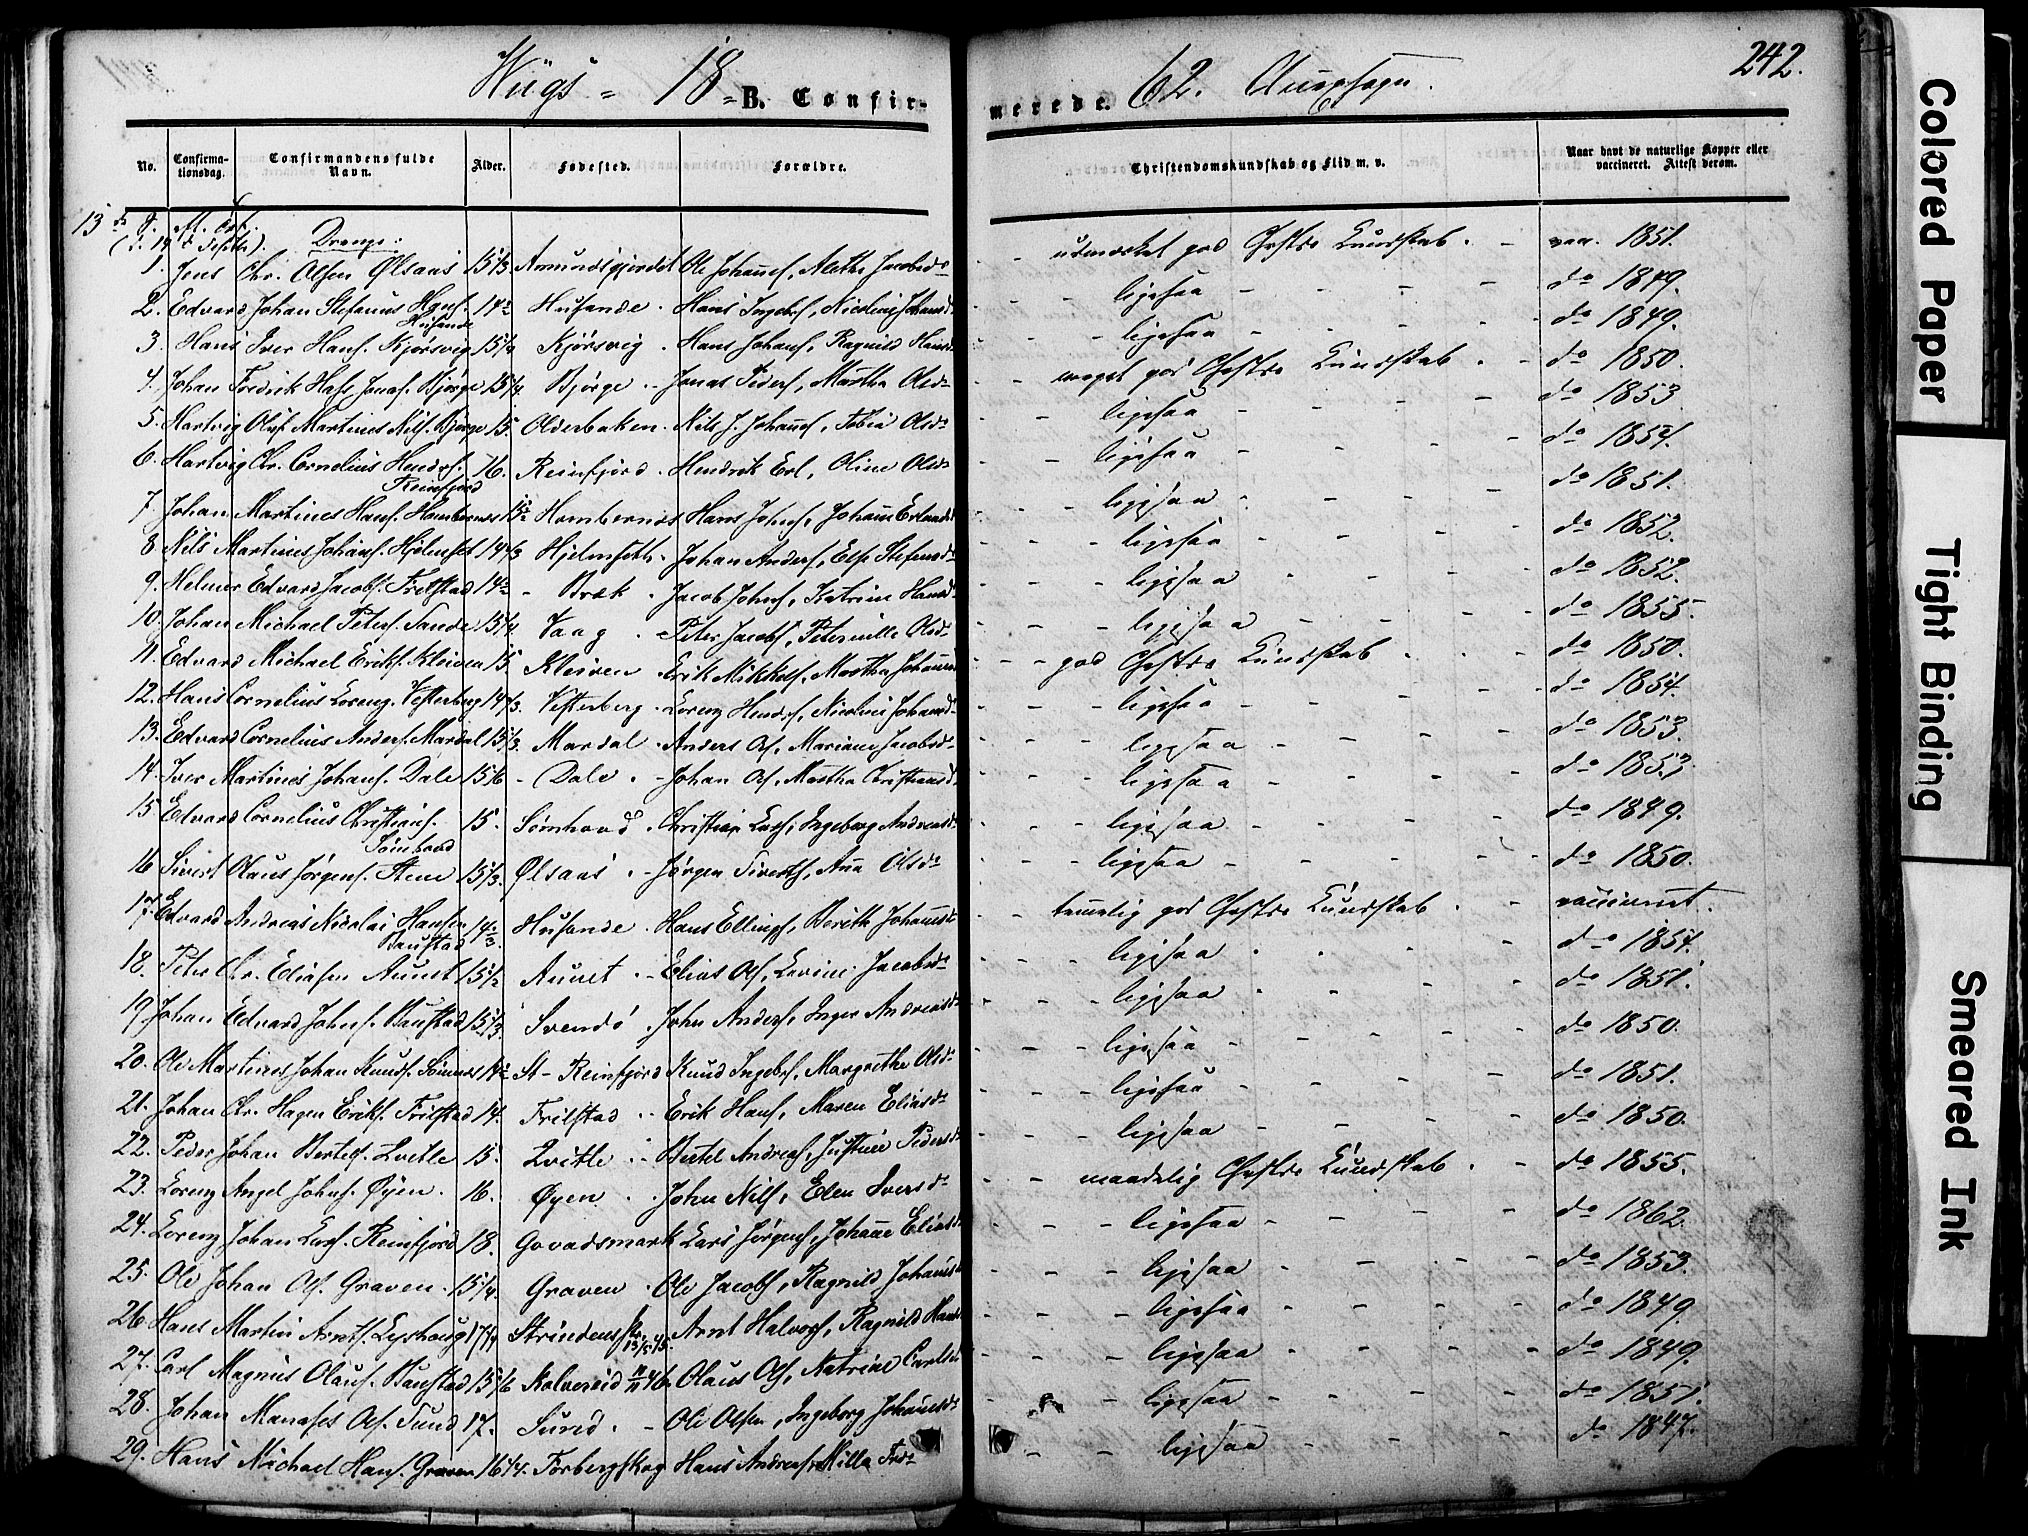 Viigs - 18 B. Confirmerede. 62. Annexsogn. 242.
No. Confirmationsdag. Confirmandens fulde Navn. Alder. Fødested. Forældre. Christendomskundskab og Flid m. v. Naar havt de naturlige Kopper eller vaccineret. Attest derom.
Drenge.
1. Jens Chr. Olsen Ølsaas 15 1/3 Amundsgjerdet Ole Johans., Alethe Jacobsd. udmærket god Chrstds Kundskab. - vac. 1851.
2. Edvard Johan Stefanus Hans. Husande 14 1/2 Husande. Hans Ingebr., Nicoline Johansd. ligesaa do 1849.
3. Hans Iver Hans. Kjørsvig 15 1/4 Kjørsvig. Hans Johans., Ragnild Hansd. ligesaa do 1849.
4. Johan Fredrik Jonas. Bjørge 15 1/4. Bjørge. Jonas Peders., Martha Olsd. meget god Chrstds Kundskab. do 1850.
5. Hartvig Oluf Martines Nils. Bjørge 15. Olderbaken. Nils J. Johans., Tobia Olsd. ligesaa do 1853
6. Hartvig Chr. Cornelius Hendrs. Reinfjord 16. Reinfjord. Hendrik Erl., Oline Olsd. ligesaa do 1854.
7. Johan Martines Hans. Hombornes 15 1/2 Hombernes Hans Johns., Johanne Erlandsd. ligesaa do 1851.
8. Nils Martines Johans. Hjelmset 14 2/3 Hjelmseth. Johan Anders., Else Stefensd. ligesaa do 1852.
9. Helmer Edvard Jacobs. Frelstad 14 1/2 - Bræk. Jacob Johns., Katrine Hansd. ligesaa do 1852.
10. Johan Michael Peters. Sande 15 1/4. Vaag. Peter Jacobs., Peternille Olsd. ligesaa do 1855.
11. Edvard Michael Eriks. Kleiven 15. Kleiven Erik Mikkels., Martha Johansd. god Chrstds Kundskab do 1850.
12. Hans Cornelius Lorenz. Vesterberg 14 2/3. Vesterberg. Lorenz Hendrs., Nicoline Johansd. ligesaa do 1854.
13. Edvard Cornelius Anders. Mardal 15 1/3. Mardal. Anders Ols. Mariane Jacobsd. ligesaa do 1853.
14. Iver Martines Johans. Dale 15 1/6 - Dale. - Johan Ols. Martha Christiansd. ligesaa do 1853
15. Edvard Cornelius Christians. Sømhovd 15. Sømhovd. Christian Lars., Ingeborg Andreasd. ligesaa do 1849.
16 Sivert Olaus Jørgens. Stene 15 1/3. Ølsaas. - Jørgen Siverts., Ane Olsd. ligesaa do 1850.
17. Edvard Andreas Nicolai Hansen Baustad 14 2/3. Husande. Hans Ellings., Berith Johansd. temmelig god Chrstds Kundskab. - vaccineret.
18. Peter Chr. Eliasen Aunet 15 1/2 Aunet. - Elias Ols., Lovine Jacobsd. ligesaa do 1854.
19. Johan Edvard Johns. Baustad 15 1/3. Svendø. John Anders., Inger Andreasd. ligesaa do 1851.
20. Ole Martines Johan Knuds. Sømnes 14 1/2 St. Reinfjord Knud Ingebrs., Margrethe Olsd. ligesaa do 1850.
21. Johan Chr. Hagen Eriks. Frelstad 14. Frelstad. Erik Hans., Maren Eliasd. ligesaa do 1851.
22. Peder Johan Bertels. Zvetle 15. Zvetle. - Bertel Andreas., Justine Pedersd. ligesaa do 1850.
23. Lorenz Angel Johns. Øyen. 16. Øyen. John Nils., Elen Iversd. maadelig Chrstds Kundskab. - do 1855.
24. Lorenz Johan Lars. Reinfjord 18. Govadsmark Lars Jørgens., Johanne Eliasd. ligesaa do 1862.
25. Ole Johan Ols. Graven. 15 1/4. Graven. Ole Jacobs., Ragnild Johansd. ligesaa do 1853.
26. Hans Martin Arnts. 17 1/4 Strinden Arnt Halvors., Ragnild Hansd. ligesaa do 1849.
27. Carl Magnus Olaus. Baustad 15 1/6 Kolvereid 46. Olaus Ols., Katrine Carlsd. ligesaa do 1849.
28. Johan Manases Ols. Sund 17. Sund. - Ole Olsen, Ingeborg Johansd. ligesaa do 1851.
29. Hans Michael Hans. Graven 16 1/4. Forbergskog Hans Andreas. Milla ligesaa do 1847.
Colored Paper
Tight Binding
Smeared Ink